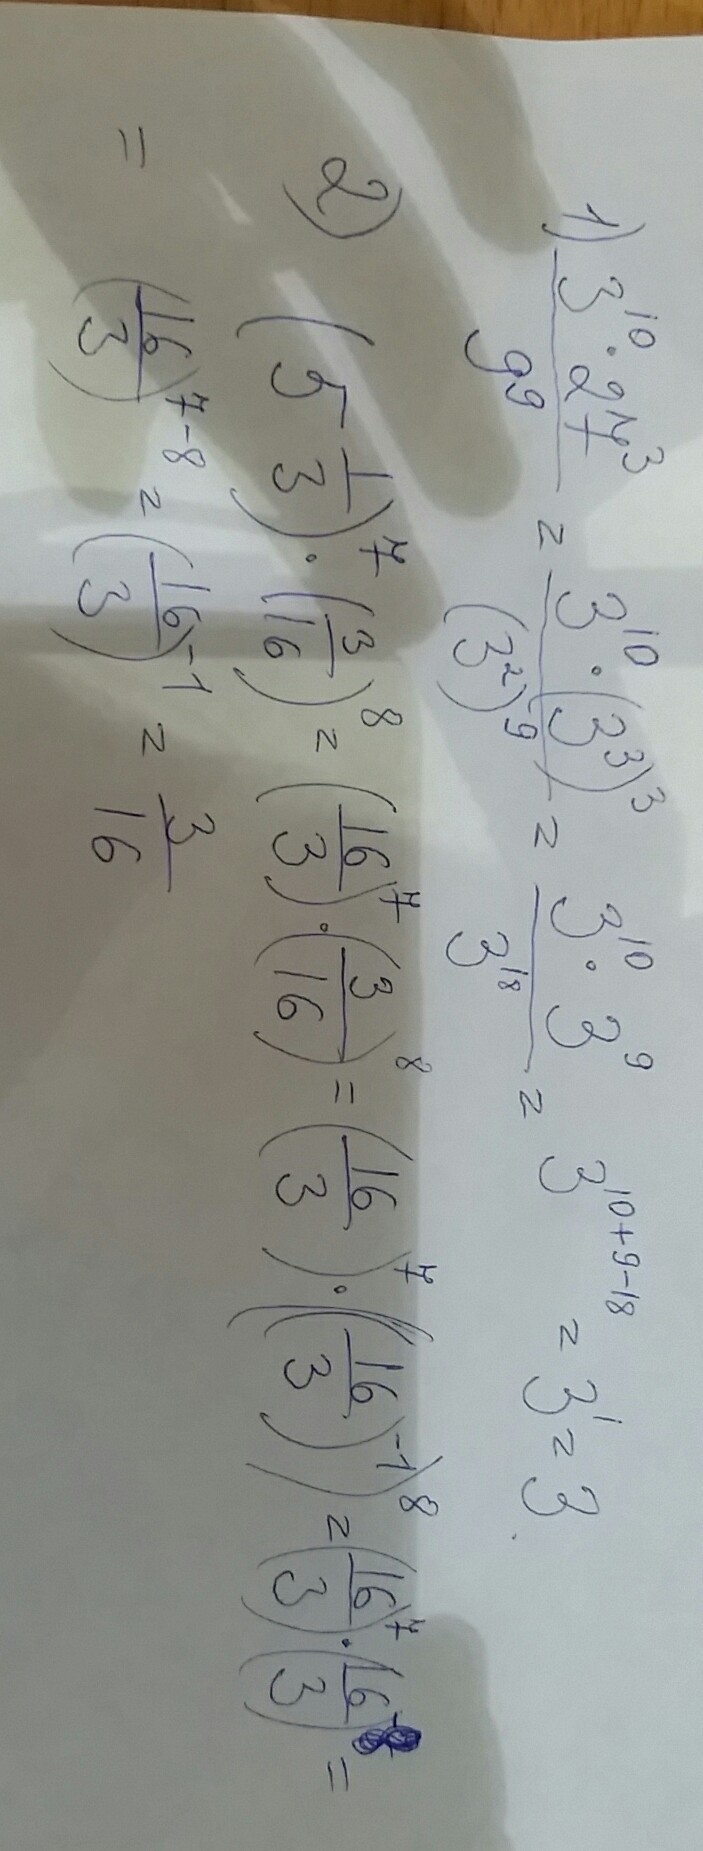 1) (3^10 · 27^3)/(9^9) = (3^10 · (3^3)^3)/((3^2)^9) = (3^10 · 3^9)/(3^18) = 3^(10+9-18) = 3^1 = 3
2) (5 1/3)^7 · (3/16)^8 = (16/3)^7 · (3/16)^8 = (16/3)^7 · ((16/3)^-1)^8 = (16/3)^7 · (16/3)^-8 =
= (16/3)^(7-8) = (16/3)^-1 = 3/16